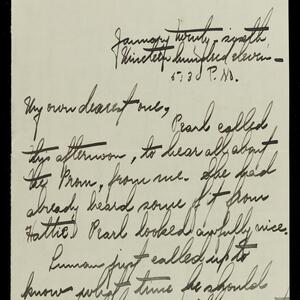 January twenty-sixth
Nineteen hundred eleven-
5:30 P.M.
My own dearest one,
Pearl called
this afternoon, to hear all about
the Prom, from me. She had
already heard some of it from
Hattie. Pearl looked awfully nice.
Luman just called up to
know what time he should